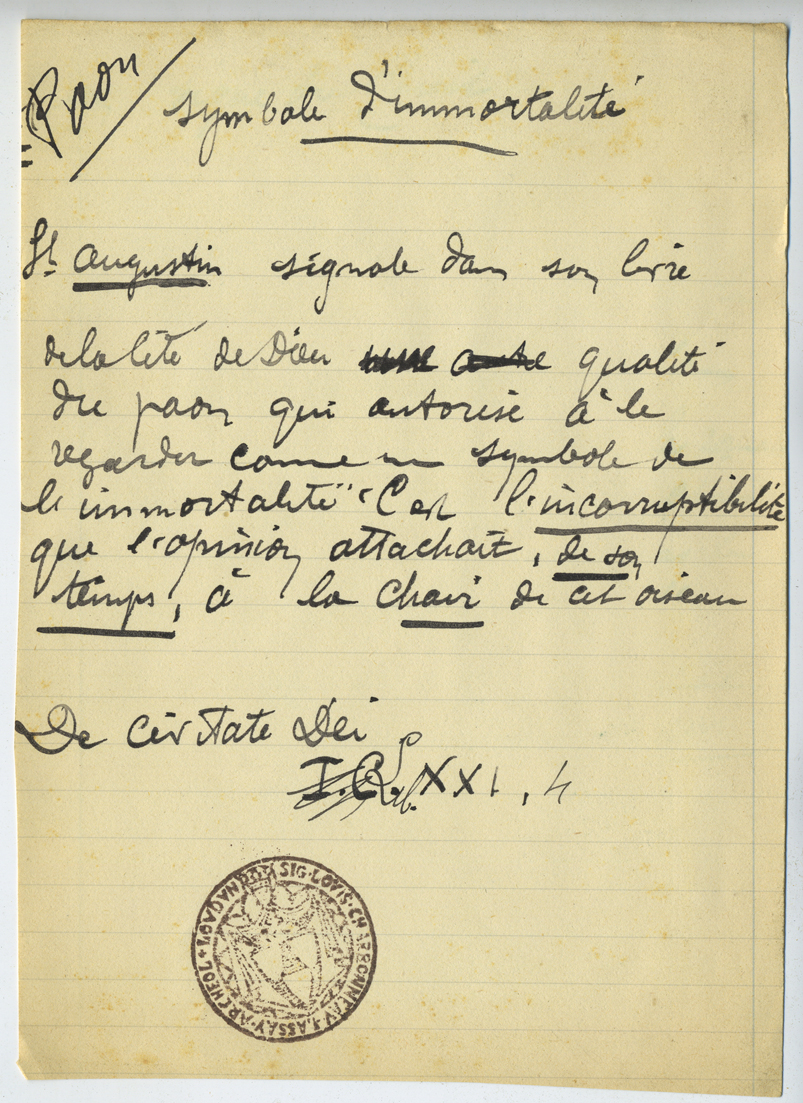 = Paon /
symbole d'immortalité
St Augustin signale dans son livre
de la Cité de Dieu une autre qualité
du paon qui autorise à le
regarder comme un symbole de
l'immortalité "C'est l'incorruptibilité
que l'opinion attachait, de son
temps, à la chair de cet oiseau
De Civitate Dei
XXI, 4
SIG·LOVIS·CHARBONNEAV·LASSAY·ARCHEOL+LOVDVN